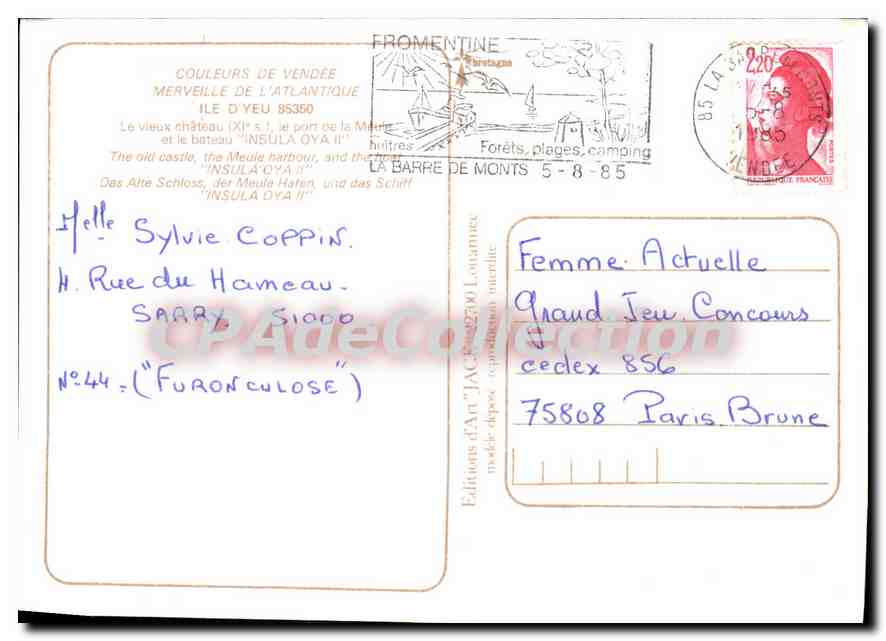 COULEURS DE VENDÉE
MERVEILLE DE L'ATLANTIQUE
ILE D'YEU 85350
Le vieux château (XIe s.), le port de la Meule
et le bateau "INSULA OYA II"
The old castle, the Meule harbour, and the boat
"INSULA OYA II"
Das Alte Schloss, der Meule Hafen, und das Schiff
"INSULA OYA II"
FROMENTINE
bretagne
huîtres
Forêts, plages, camping
LA BARRE DE MONTS 5-8-85
85 LA BARRE DE MONTS
5-8
1985
VENDEE
2,20
POSTES
REPUBLIQUE FRANÇAISE
Melle Sylvie COPPIN.
4. Rue du Hameau.
SARRY. 51000
N° 44 = ("FURONCULOSE")
Editions d'Art "JACK" 22700 Louannec
modèle déposé reproduction interdite
Femme Actuelle
Grand Jeu Concours
cedex 856
75808 Paris Brune
CPAdeCollection